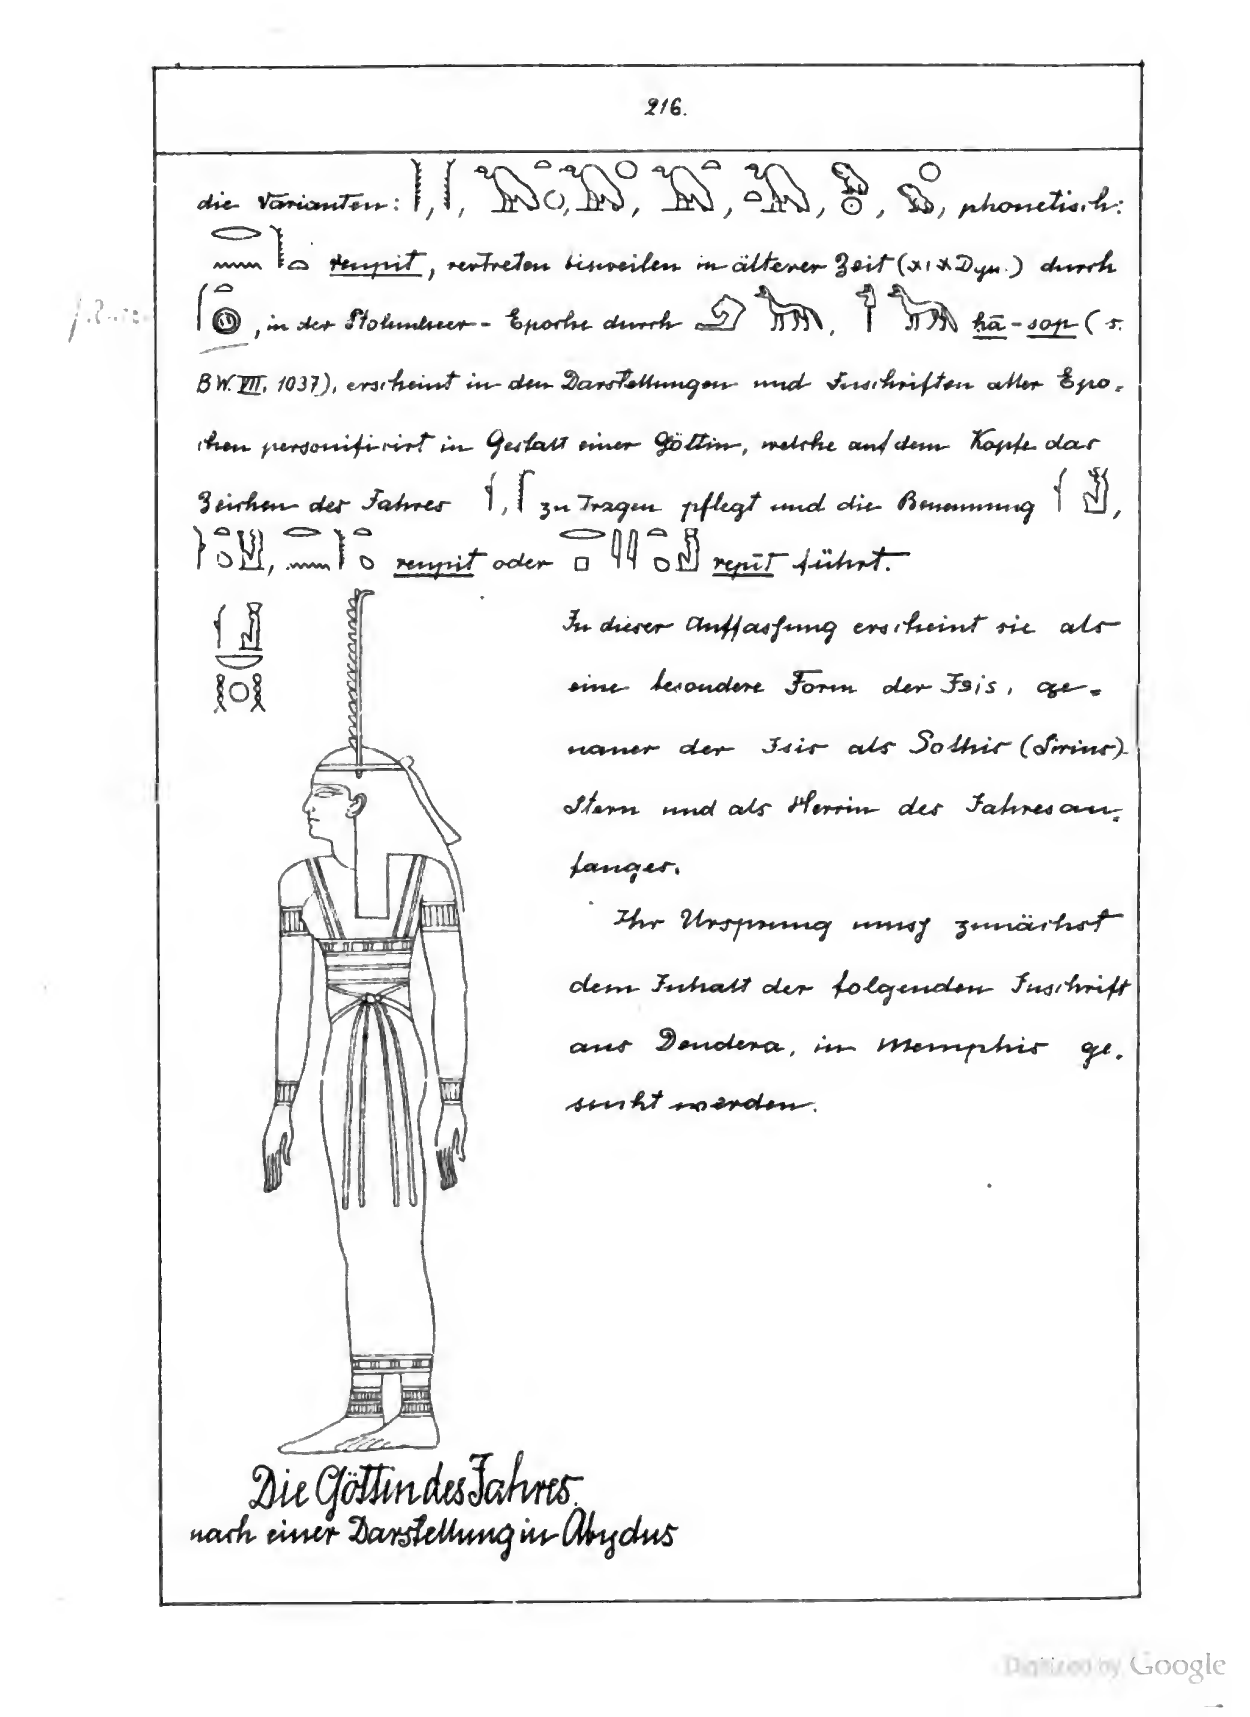 216.
die Varianten: , , , , , , , phonetisch:
renpit, vertreten bisweilen in älterer Zeit (XIX Dyn.) durch
, in der Ptolemäer-Epoche durch , hā-sop (s.
BW. VII, 1037), erscheint in den Darstellungen und Inschriften aller Epo-
chen personificirt in Gestalt einer Göttin, welche auf dem Kopfe das
Zeichen des Jahres , zu tragen pflegt und die Benennung ,
, renpit oder repit führt.
In dieser Auffassung erscheint sie als
eine besondere Form der Isis, ge-
nauer der Isis als Sothis (Sirius)
Stern und als Herrin des Jahresan-
fanges.
Ihr Ursprung muss zunächst
dem Inhalt der folgenden Inschrift
aus Dendera, in Memphis ge-
sucht werden.
Die Göttin des Jahres.
nach einer Darstellung in Abydus
Digitized by Google